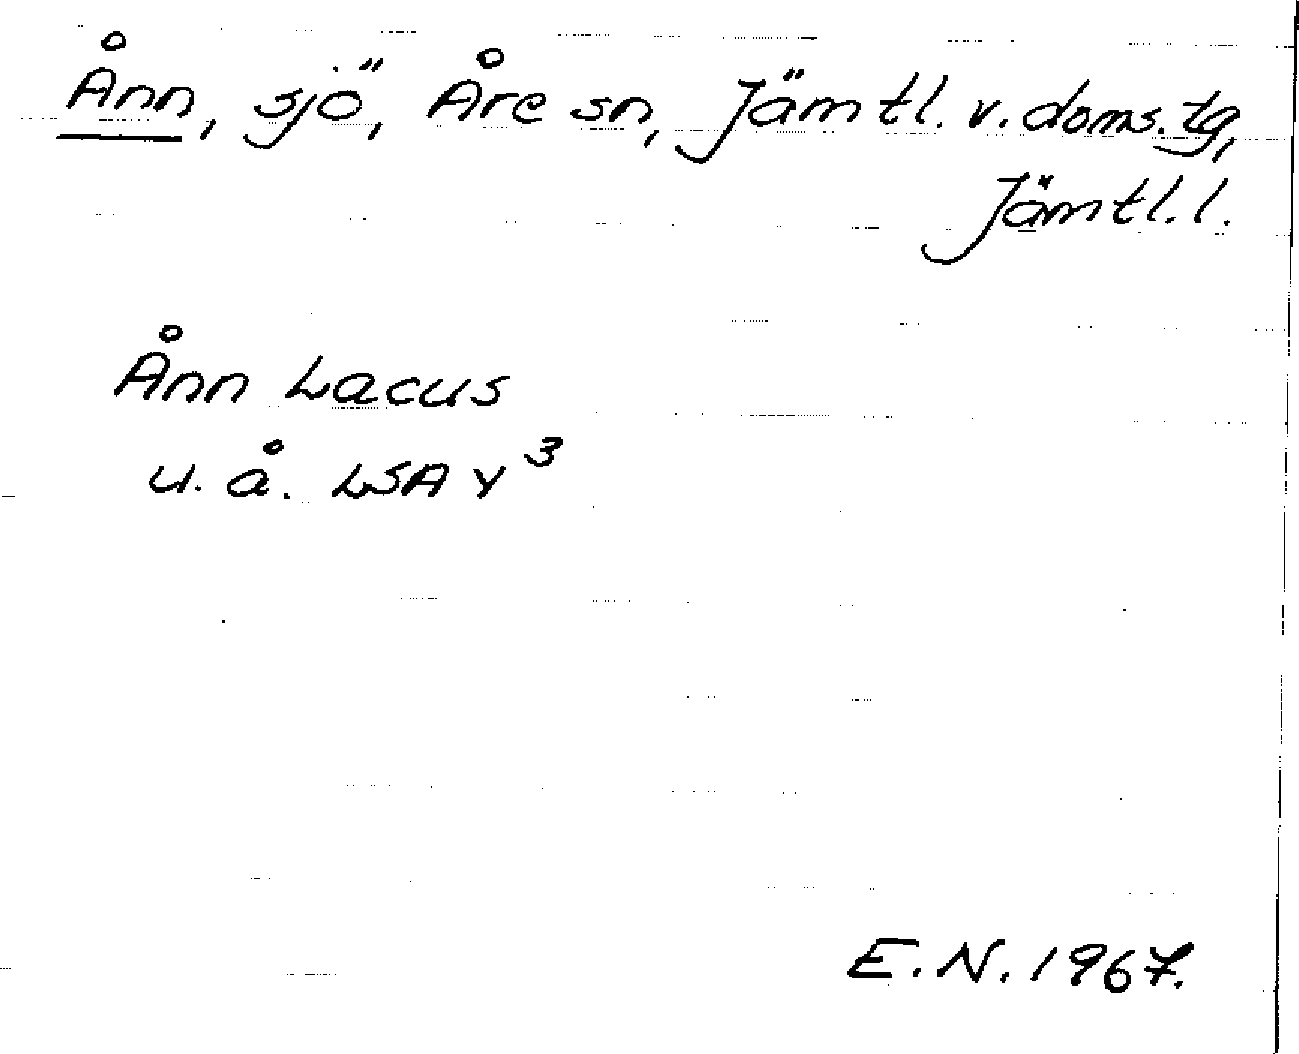 Ånn, sjö, Åre sn, Jämtl. v. doms. tg,
Jämtl. l.
Ånn Lacus
u. å. LSA Y³
E. N. 1967.